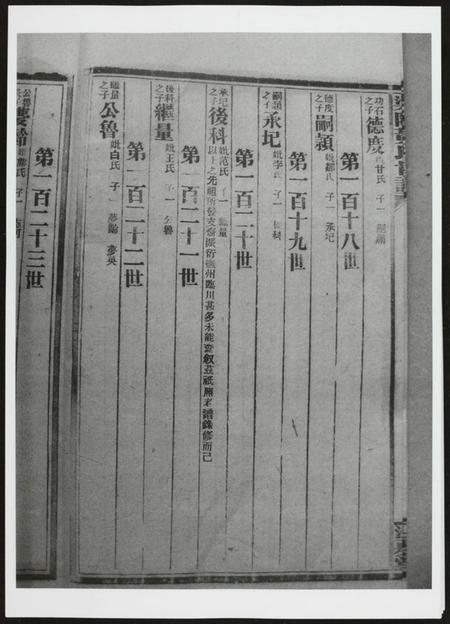 功石之子 德度 妣甘氏 子一 嗣潁
第一百十八世
德度之子 嗣潁 妣鄒氏 子一 承圯
第一百十九世
嗣潁之子 承圯 妣李氏 子一 後科
第一百二十世
承圯之子 後科 妣范氏 子一 繼量
以上之先祖所發支裔繁衍 州臨川甚多未能查叙茲祇照老譜錄修而已
第一百二十一世
後科之子 繼量 妣王氏 子一 公魯
第一百二十二世
繼量之子 公魯 妣白氏 子二 夢齡 夢英
第一百二十三世
公魯長子 夢齡 氏 子一